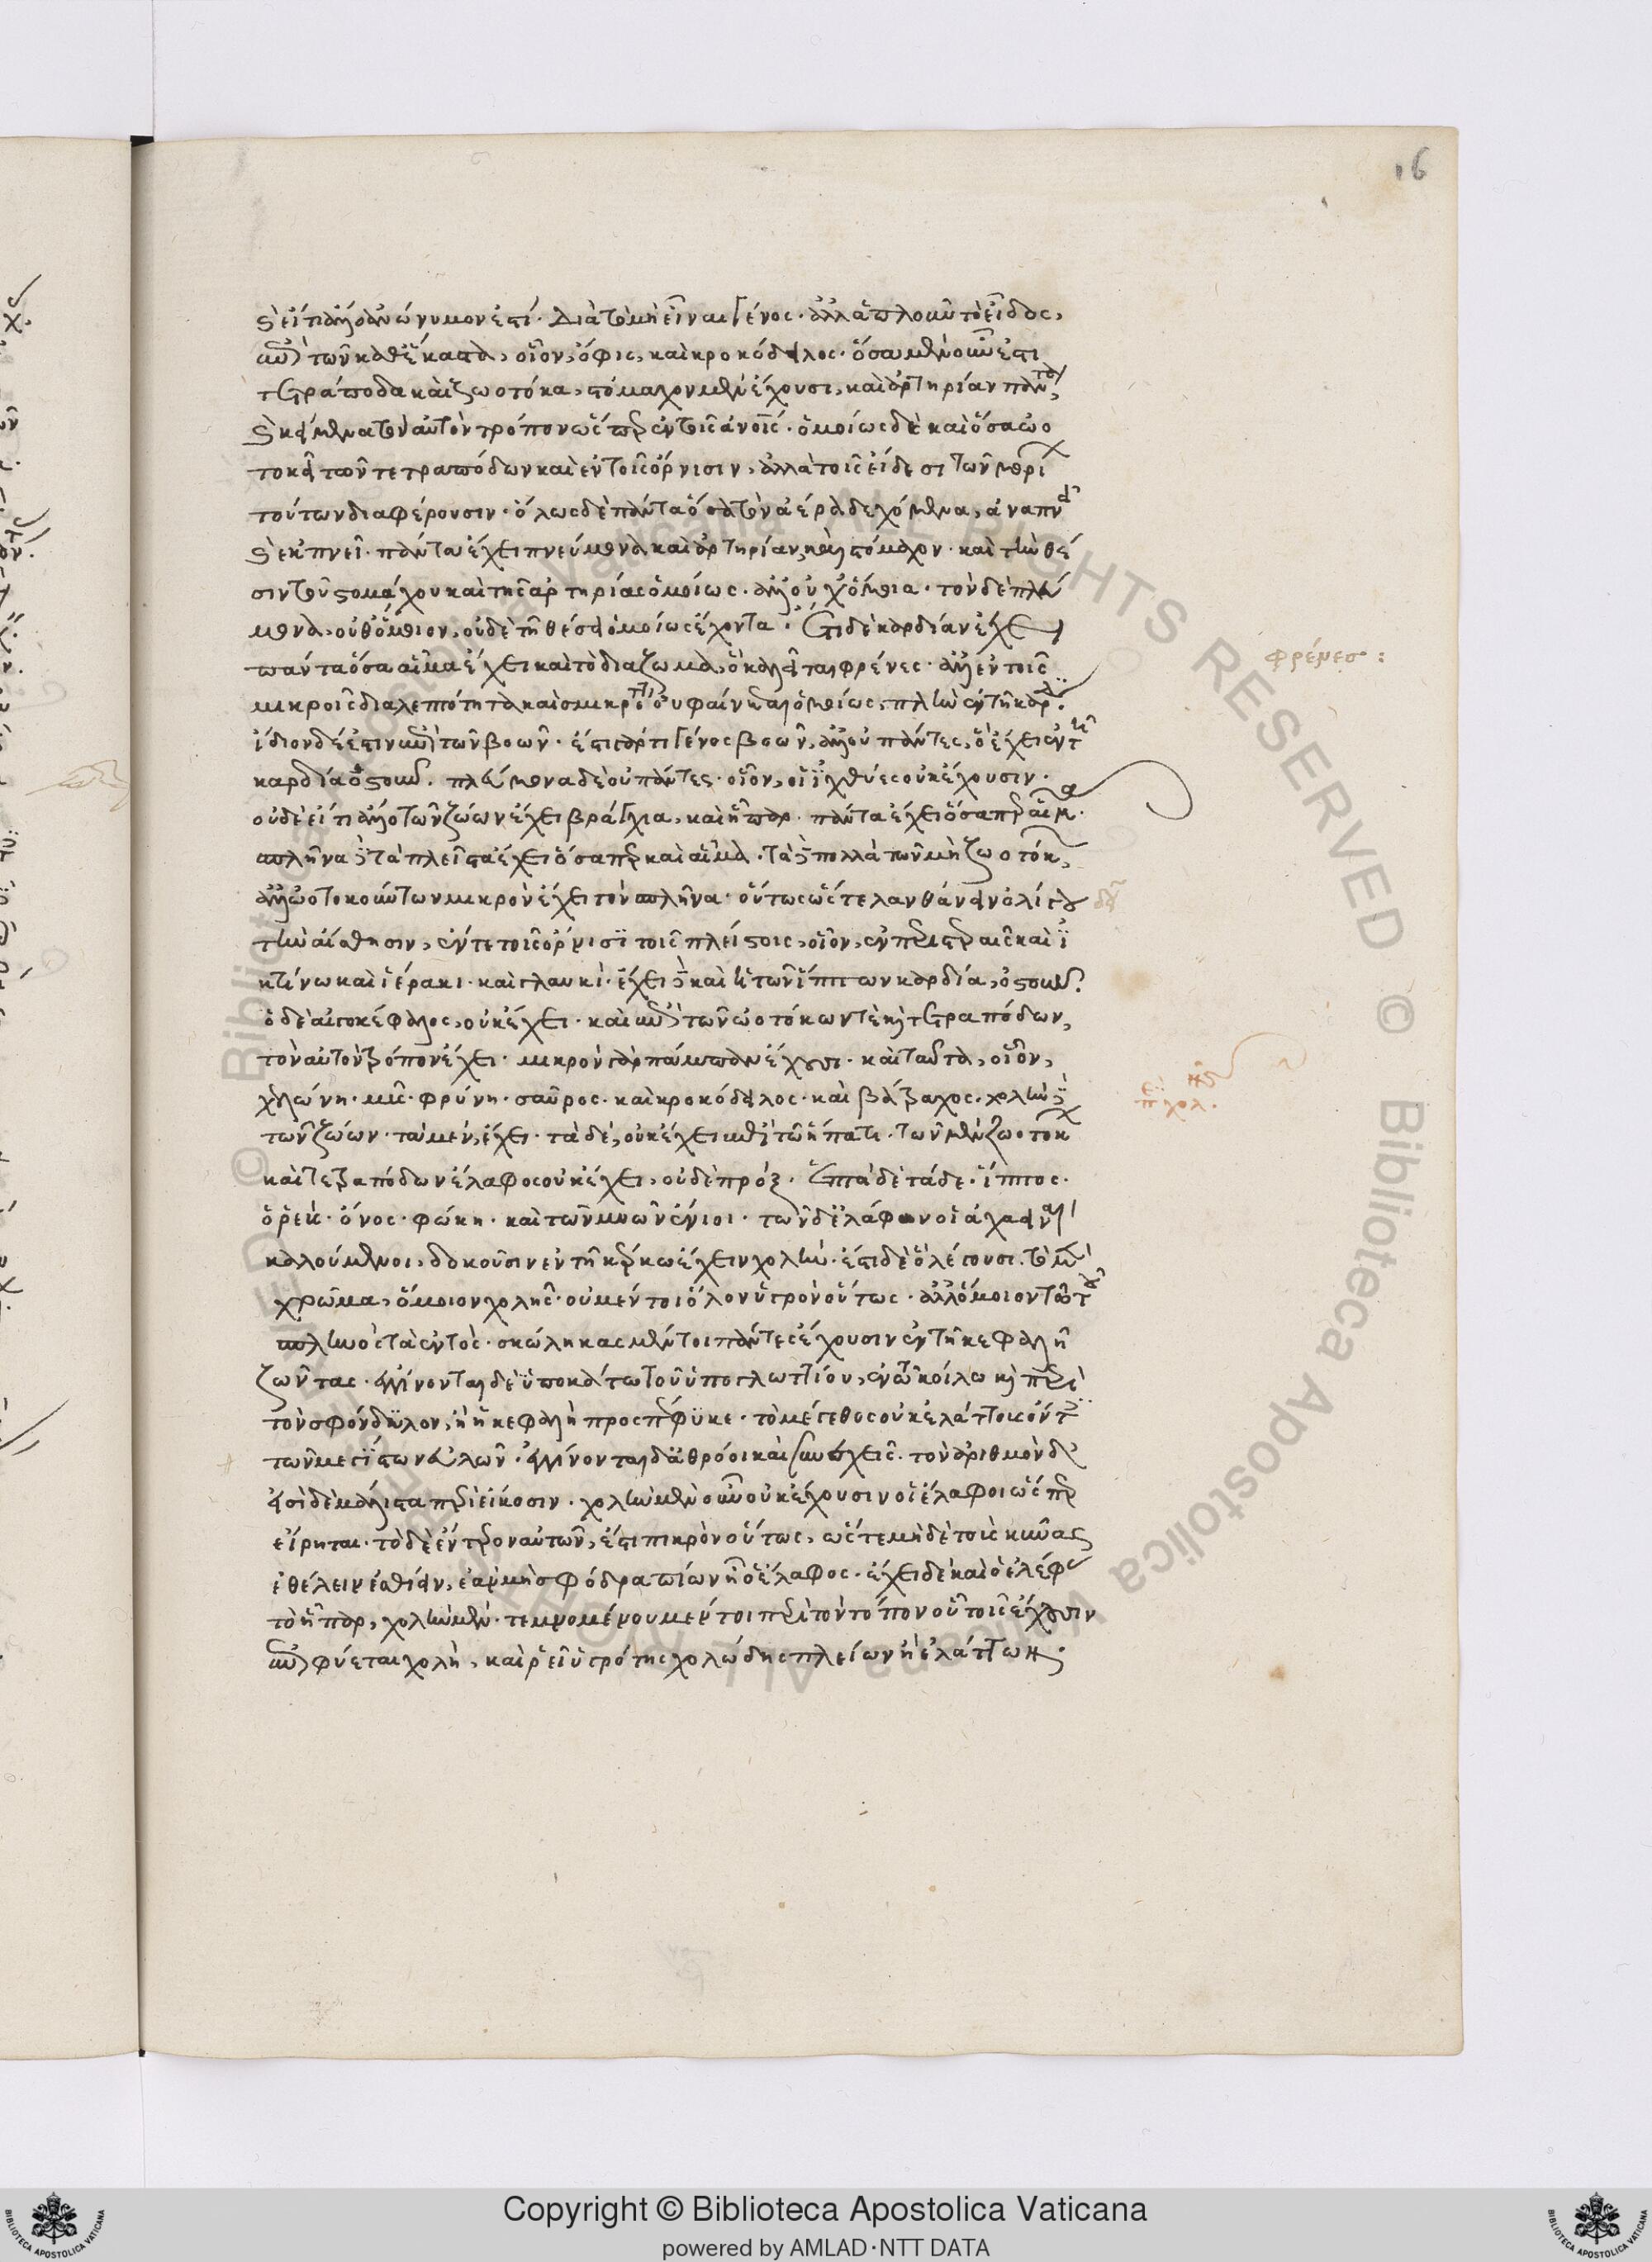 καὶ εἴ τι ἄλλο ἀνώνυμον ἐστί· διὰ τὸ μὴ εἶναι γένος· ἀλλὰ ἁπλοῦν τὸ εἶδος,
αὐτῶν καθ' ἕκαστα, οἷον, ὄφις, καὶ κροκόδειλος· ὅσα μὲν οὖν ἐστι
τετράποδα καὶ ζωοτόκα, στόμαχον μὲν ἔχουσι, καὶ ἀρτηρίαν πάντα,
καὶ κείμενα τὸν αὐτὸν τρόπον ὥσπερ ἐν τοῖς ἀνοις· ὁμοίως δὲ καὶ ὅσα ὠο
τοκεῖ τῶν τετραπόδων καὶ ἐν τοῖς ὄρνισιν, ἀλλὰ τοῖς εἴδεσι τῶν μορίων
τούτων διαφέρουσιν· ὅλως δὲ πάντα ὅσα τὸν ἀέρα δεχόμενα, ἀναπνεῖ
καὶ ἐκπνεῖ· πάντα ἔχει πνεύμονα καὶ ἀρτηρίαν, καὶ στόμαχον· καὶ τὴν θέ
σιν τοῦ στομάχου καὶ τῆς ἀρτηρίας ὁμοίως· ἀλλ' οὐχ' ὅμοια· τὸν δὲ πλεύ
μονα, οὐθ' ὅμοιον, οὐδὲ τῆ θέσει ὁμοίως ἔχοντα· ἔτι δὲ καρδίαν ἔχει
πάντα ὅσα αἷμα ἔχει καὶ τὸ διάζωμα, ὃ καλεῖται φρένες· ἀλλ' ἐν τοῖς
μικροῖς διὰ λεπτότητα καὶ σμικρότητα οὐ φαίνεται ὁμοίως, πλὴν ἐν τῆ καρδία.
ἴδιον δέ ἐστιν αὐτὸ τῶν βοῶν· ἔστι γάρ τι γένος βοῶν, ἀλλ' οὐ πάντες, ὃ ἔχει ἐν τῆ
καρδία ὀστοῦν. πλεύμονα δὲ οὐ πάντες· οἷον, οἱ ἰχθύες οὐκ ἔχουσιν·
οὐδὲ εἴ τι ἄλλο τῶν ζώων ἔχει βράγχια, καὶ ἧπαρ· πάντα ἔχει ὅσαπερ αἷμα.
σπλῆνα δὲ τὰ πλεῖστα ἔχει ὅσαπερ καὶ αἷμα· τὰ δὲ πολλὰ τῶν μὴ ζωοτόκων,
ἀλλ' ὠοτοκούντων μικρὸν ἔχει τὸν σπλῆνα· οὕτως ὥστε λανθάνειν ὀλίγου
τὴν αἴσθησιν, ἔν τε τοῖς ὄρνισι τοῖς πλείστοις, οἷον, ἐν περιστεραῖς καὶ ἰ
κτίνω καὶ ἱέρακι· καὶ γλαυκί· ἔχει δὲ καὶ ἡ τῶν ἵππων καρδία, ὀστοῦν.
ὁ δὲ αἰγοκέφαλος, οὐκ ἔχει· καὶ ἐπὶ τῶν ὠοτόκων τὲ καὶ τετραπόδων,
τὸν αὐτὸν τρόπον ἔχει· μικρὸν γὰρ πάμπαν ἔχουσι· καὶ ταῦτα, οἷον,
χελώνη· μῦς· φρύνη· σαῦρος· καὶ κροκόδειλος· καὶ βάτραχος. χολὴν δὲ
τῶν ζώων· τὰ μὲν, ἔχει· τὰ δὲ, οὐκ ἔχει ἐπὶ τῶ ἥπατι· τῶν μὲν ζωοτόκων
καὶ τετραπόδων ἔλαφος οὐκ ἔχει, οὐδὲ πρόξ· ἔτι δὲ τάδε· ἵππος·
ὀρεύς· ὄνος· φώκη· καὶ τῶν μυῶν ἔνιοι· τῶν δ' ἐλάφων οἱ ἀχαϊναι
καλούμενοι, δοκοῦσιν ἐν τῆ κέρκω ἔχειν χολὴν· ἔστι δὲ ὃ λέγουσι. τὸ μὲν
χρῶμα, ὅμοιον χολῆς· οὐ μέντοι ὅλον ὑγρὸν οὕτως· ἀλλ' ὅμοιον τῶ τοῦ
σπληνὸς τὰ ἐντός· σκώληκας μέντοι πάντες ἔχουσιν ἐν τῆ κεφαλῆ
ζῶντας· ἐγγίνονται δὲ ὑποκάτω τοῦ ὑπογλωττίου, ἐν τῶ κοίλω καὶ περὶ
τὸν σφόνδυλον, ἧ ἡ κεφαλὴ προσπέφυκε· τὸ μέγεθος οὐκ ἐλάττους ὄντες
τῶν μεγίστων εὐλῶν· ἐγγίνονται δ' ἀθρόοι καὶ συνεχεῖς· τὸν ἀριθμὸν δ'
εἰσὶ δὲ μάλιστα περὶ εἴκοσιν· χολὴν μὲν οὖν οὐκ ἔχουσιν οἱ ἔλαφοι ὥσπερ
εἴρηται· τὸ δὲ ἔντερον αὐτῶν, ἐστι πικρὸν οὕτως, ὥστε μηδὲ τοὺς κύνας
ἐθέλειν ἐσθίειν, ἐὰν μὴ σφόδρα πίων ἦ ὁ ἔλαφος· ἔχει δὲ καὶ ὁ ἐλέφας
τὸ ἧπαρ, χολὴν μὲν· τεμνομένου μέντοι περὶ τὸν τόπον οὗ τοῖς ἔχουσιν
ἐπιφύεται χολὴ, καὶ ῥεῖ ὑγρότης χολώδης πλείων ἢ ἐλάττων·
φρένεσ :
16
Copyright © Biblioteca Apostolica Vaticana
powered by AMLAD·NTT DATA